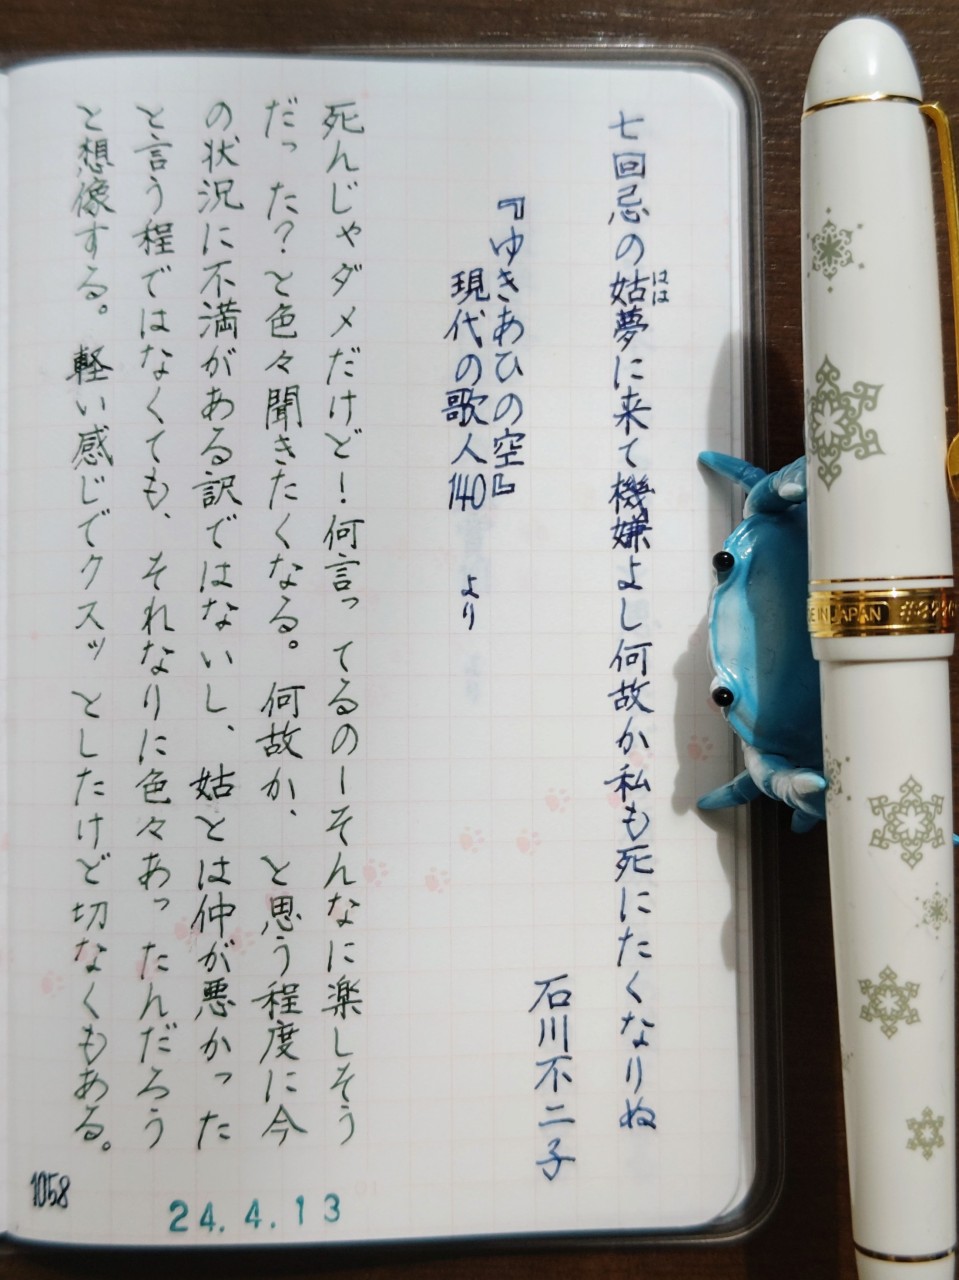 七回忌の姑夢に来て機嫌よし何故か私も死にたくなりぬ
はは
石川不二子
『ゆきあひの空』
現代の歌人140 より
死んじゃダメだけど！何言ってるのーそんなに楽しそう
だった？と色々聞きたくなる。何故か、と思う程度に今
の状況に不満がある訳ではないし、姑とは仲が悪かった
と言う程ではなくても、それなりに色々あったんだろう
と想像する。軽い感じでクスッとしたけど切なくもある。
1058
24.4.13
E IN JAPAN